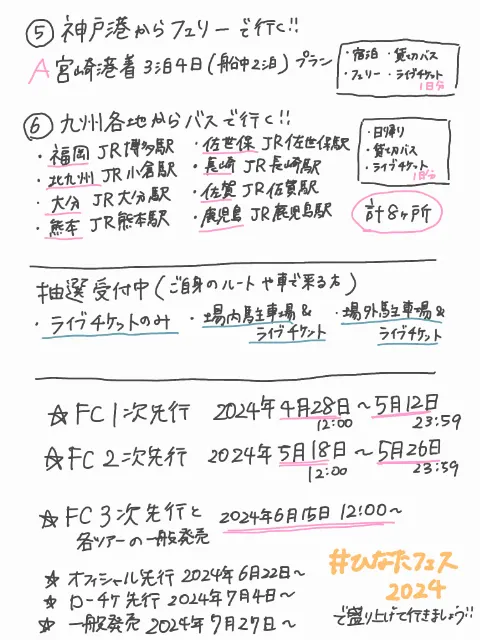 ⑤ 神戸港からフェリーで行く!!
A 宮崎港着3泊4日(船中2泊)プラン
・宿泊 ・貸切バス
・フェリー ・ライブチケット
1日分
⑥ 九州各地からバスで行く!!
・福岡 JR博多駅 ・佐世保 JR佐世保駅
・北九州 JR小倉駅 ・長崎 JR長崎駅
・大分 JR大分駅 ・佐賀 JR佐賀駅
・熊本 JR熊本駅 ・鹿児島 JR鹿児島駅
・日帰り
・貸切バス
・ライブチケット
1日分
計8ヶ所
抽選受付中(ご自身のルートや車で来る方)
・ライブチケットのみ ・場内駐車場&ライブチケット ・場外駐車場&ライブチケット
☆FC1次先行 2024年4月28日〜5月12日
12:00 23:59
☆FC2次先行 2024年5月18日〜5月26日
12:00 23:59
☆FC3次先行と 2024年6月15日 12:00〜
各ツアーの一般発売
☆オフィシャル先行 2024年6月22日〜
☆ローチケ先行 2024年7月4日〜
☆一般発売 2024年7月27日〜
#ひなたフェス
2024
で盛り上げて行きましょう!!